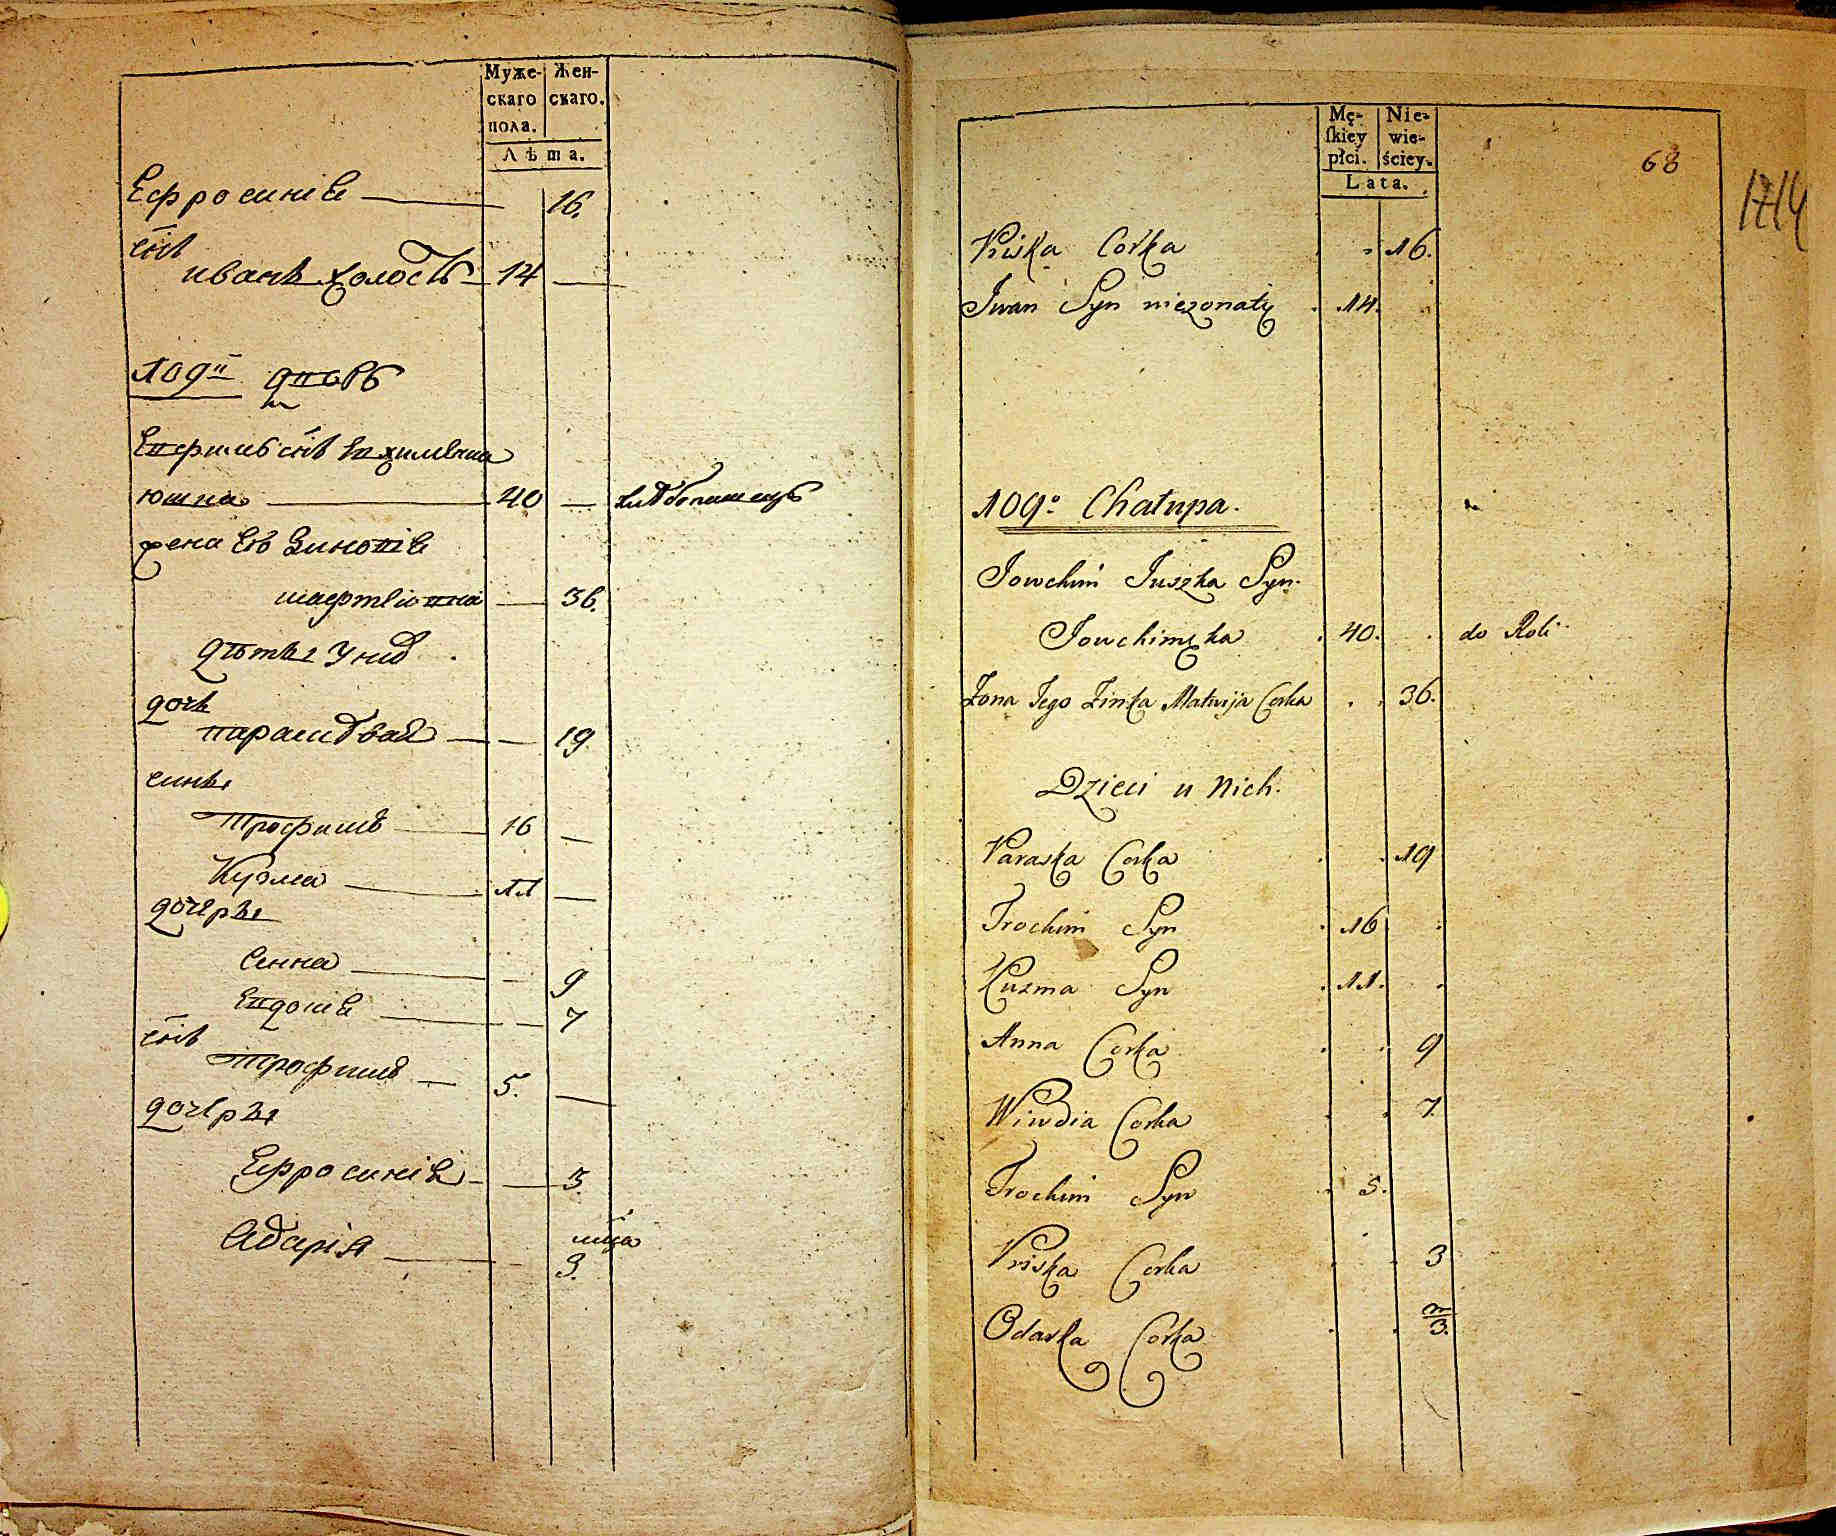 Муже-
скаго
пола.
Жен-
скаго.
Лѣта.
Ефросиніѣ 16.
снъ
иванъ холостъ 14
109й дворъ
Евфимъ снъ
юшка 40 хлѣбопашецъ
жена Его Зиновіѣ
36.
дѣти у нихъ
дочь
параскѣвая 19
сины
Трофимъ 16
Кузма 11
дочеры
анна 9
Евдокіѣ 7
снъ
Трофимъ 5.
дочеры
Ефросиніѣ 3.
Адаріѧ мца 3.
Mę-
ſkiey
płci.
Nie-
wie-
ściey.
Lata.
68
1714
Priska Corka 16.
Iwan Syn niezonaty 14.
109o Chałupa.
Jowchim Juszka Syn
Jowchimka 40. do Roli
Żona Jego Zinka Matwija Corka 36.
Dzieci u Nich.
Paraska Corka 19
Trochim Syn 16
Kuzma Syn 11.
Anna Corka 9
Wiwdia Corka 7.
Trochim Syn 5.
Priska Corka 3
Odarka Corka m/3.